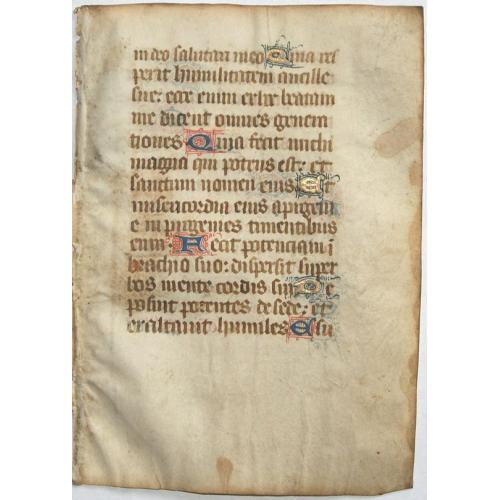 in deo salutari meo Quia res
perit humilitatem ancille
sue: ecce enim ex hoc beatam
me dicent omnes genera
tiones Quia fecit michi
magna qui potens est: et
sanctum nomen eius Et
misericordia eius a progenie
in progenies timentibus
eum: Fecit potenciam i
brachio suo: dispersit super
bos mente cordis sui De
posuit potentes de sede: et
exaltavit humiles Esu